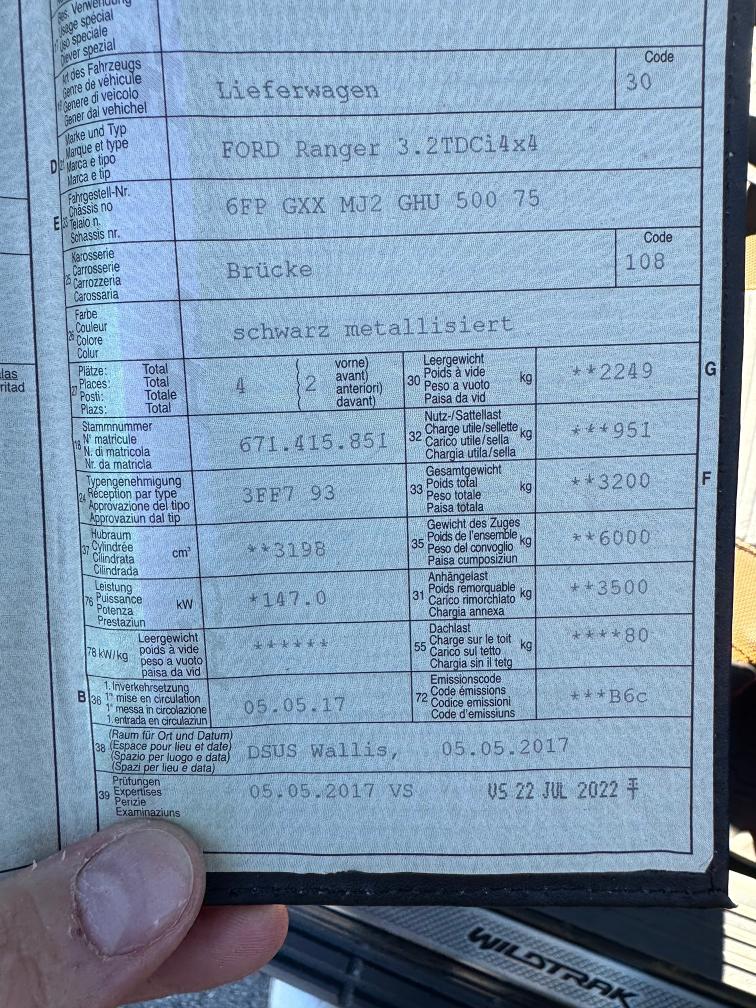 Bes. Verwendung
Usage spécial
Uso speciale
Diever spezial
Art des Fahrzeugs
Genre de véhicule
Genere di veicolo
Gener dal vehichel
Lieferwagen
Code
30
D
Marke und Typ
Marque et type
Marca e tipo
Marca e tip
FORD Ranger 3.2TDCi4x4
E
23
Fahrgestell-Nr.
Châssis no
Telaio n.
Schassis nr.
6FP GXX MJ2 GHU 500 75
25
Karosserie
Carrosserie
Carrozzeria
Carossaria
Brücke
Code
108
26
Farbe
Couleur
Colore
Colur
schwarz metallisiert
27
Plätze: Total
Places: Total
Posti: Totale
Plazs: Total
4
2
vorne)
avant)
anteriori)
davant)
30
Leergewicht
Poids à vide
Peso a vuoto
Paisa da vid
kg
**2249
G
18
Stammnummer
N° matricule
N. di matricola
Nr. da matricla
671.415.851
32
Nutz-/Sattellast
Charge utile/sellette
Carico utile/sella
Chargia utila/sella
kg
***951
24
Typengenehmigung
Réception par type
Approvazione del tipo
Approvaziun dal tip
3FF7 93
33
Gesamtgewicht
Poids total
Peso totale
Paisa totala
kg
**3200
F
37
Hubraum
Cylindrée
Cilindrata
Cilindrada
cm³
**3198
35
Gewicht des Zuges
Poids de l'ensemble
Peso del convoglio
Paisa cumposiziun
kg
**6000
76
Leistung
Puissance
Potenza
Prestaziun
kW
*147.0
31
Anhängelast
Poids remorquable
Carico rimorchiato
Chargia annexa
kg
**3500
78 kW/kg
Leergewicht
poids à vide
peso a vuoto
paisa da vid
******
55
Dachlast
Charge sur le toit
Carico sul tetto
Chargia sin il tetg
kg
****80
B
36
1. Inverkehrsetzung
1re mise en circulation
1a messa in circolazione
1. entrada en circulaziun
05.05.17
72
Emissionscode
Code émissions
Codice emissioni
Code d'emissiuns
***B6c
38
(Raum für Ort und Datum)
(Espace pour lieu et date)
(Spazio per luogo e data)
(Spazi per lieu e data)
DSUS Wallis, 05.05.2017
39
Prüfungen
Expertises
Perizie
Examinaziuns
05.05.2017 VS
VS 22 JUL 2022
WILDTRAK